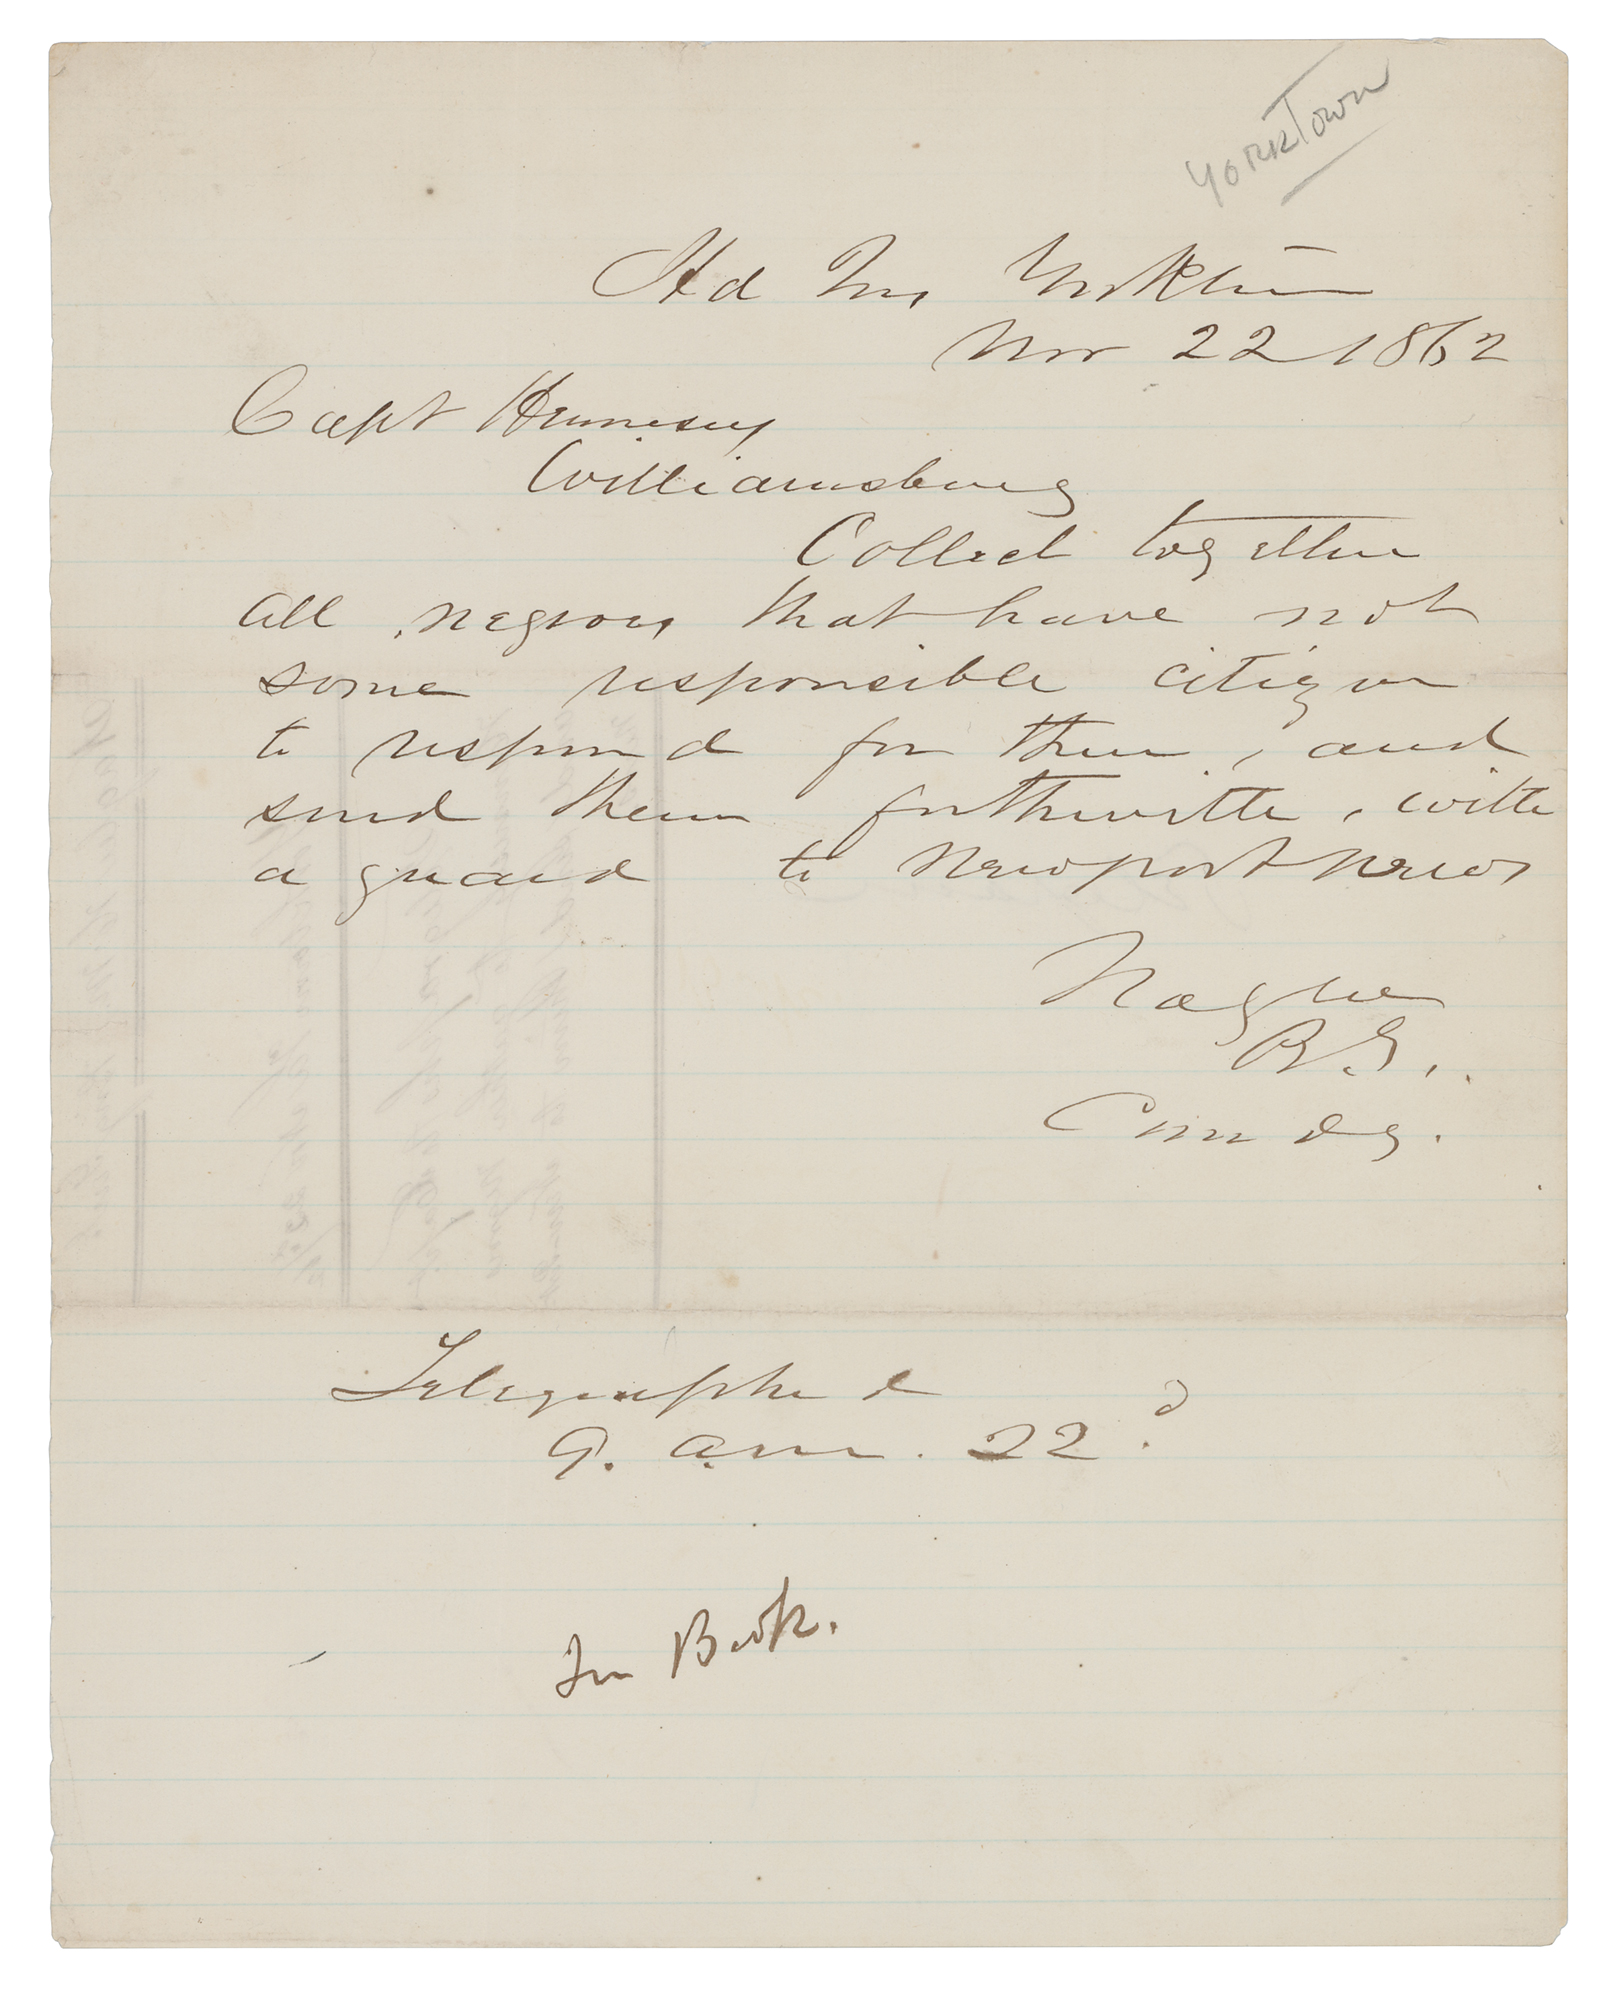 YorkTown
Hd Qrs Yorktown
Nov 22 1862
Capt Hennesey
Williamsburg
Collect together
all negroes that have not
some responsible citizen
to respond for them, and
send them forthwith, with
a guard to Newport News
Naglee
B.G.
Comdg.
Telegraphed
9. a.m. 22.d
In Book.